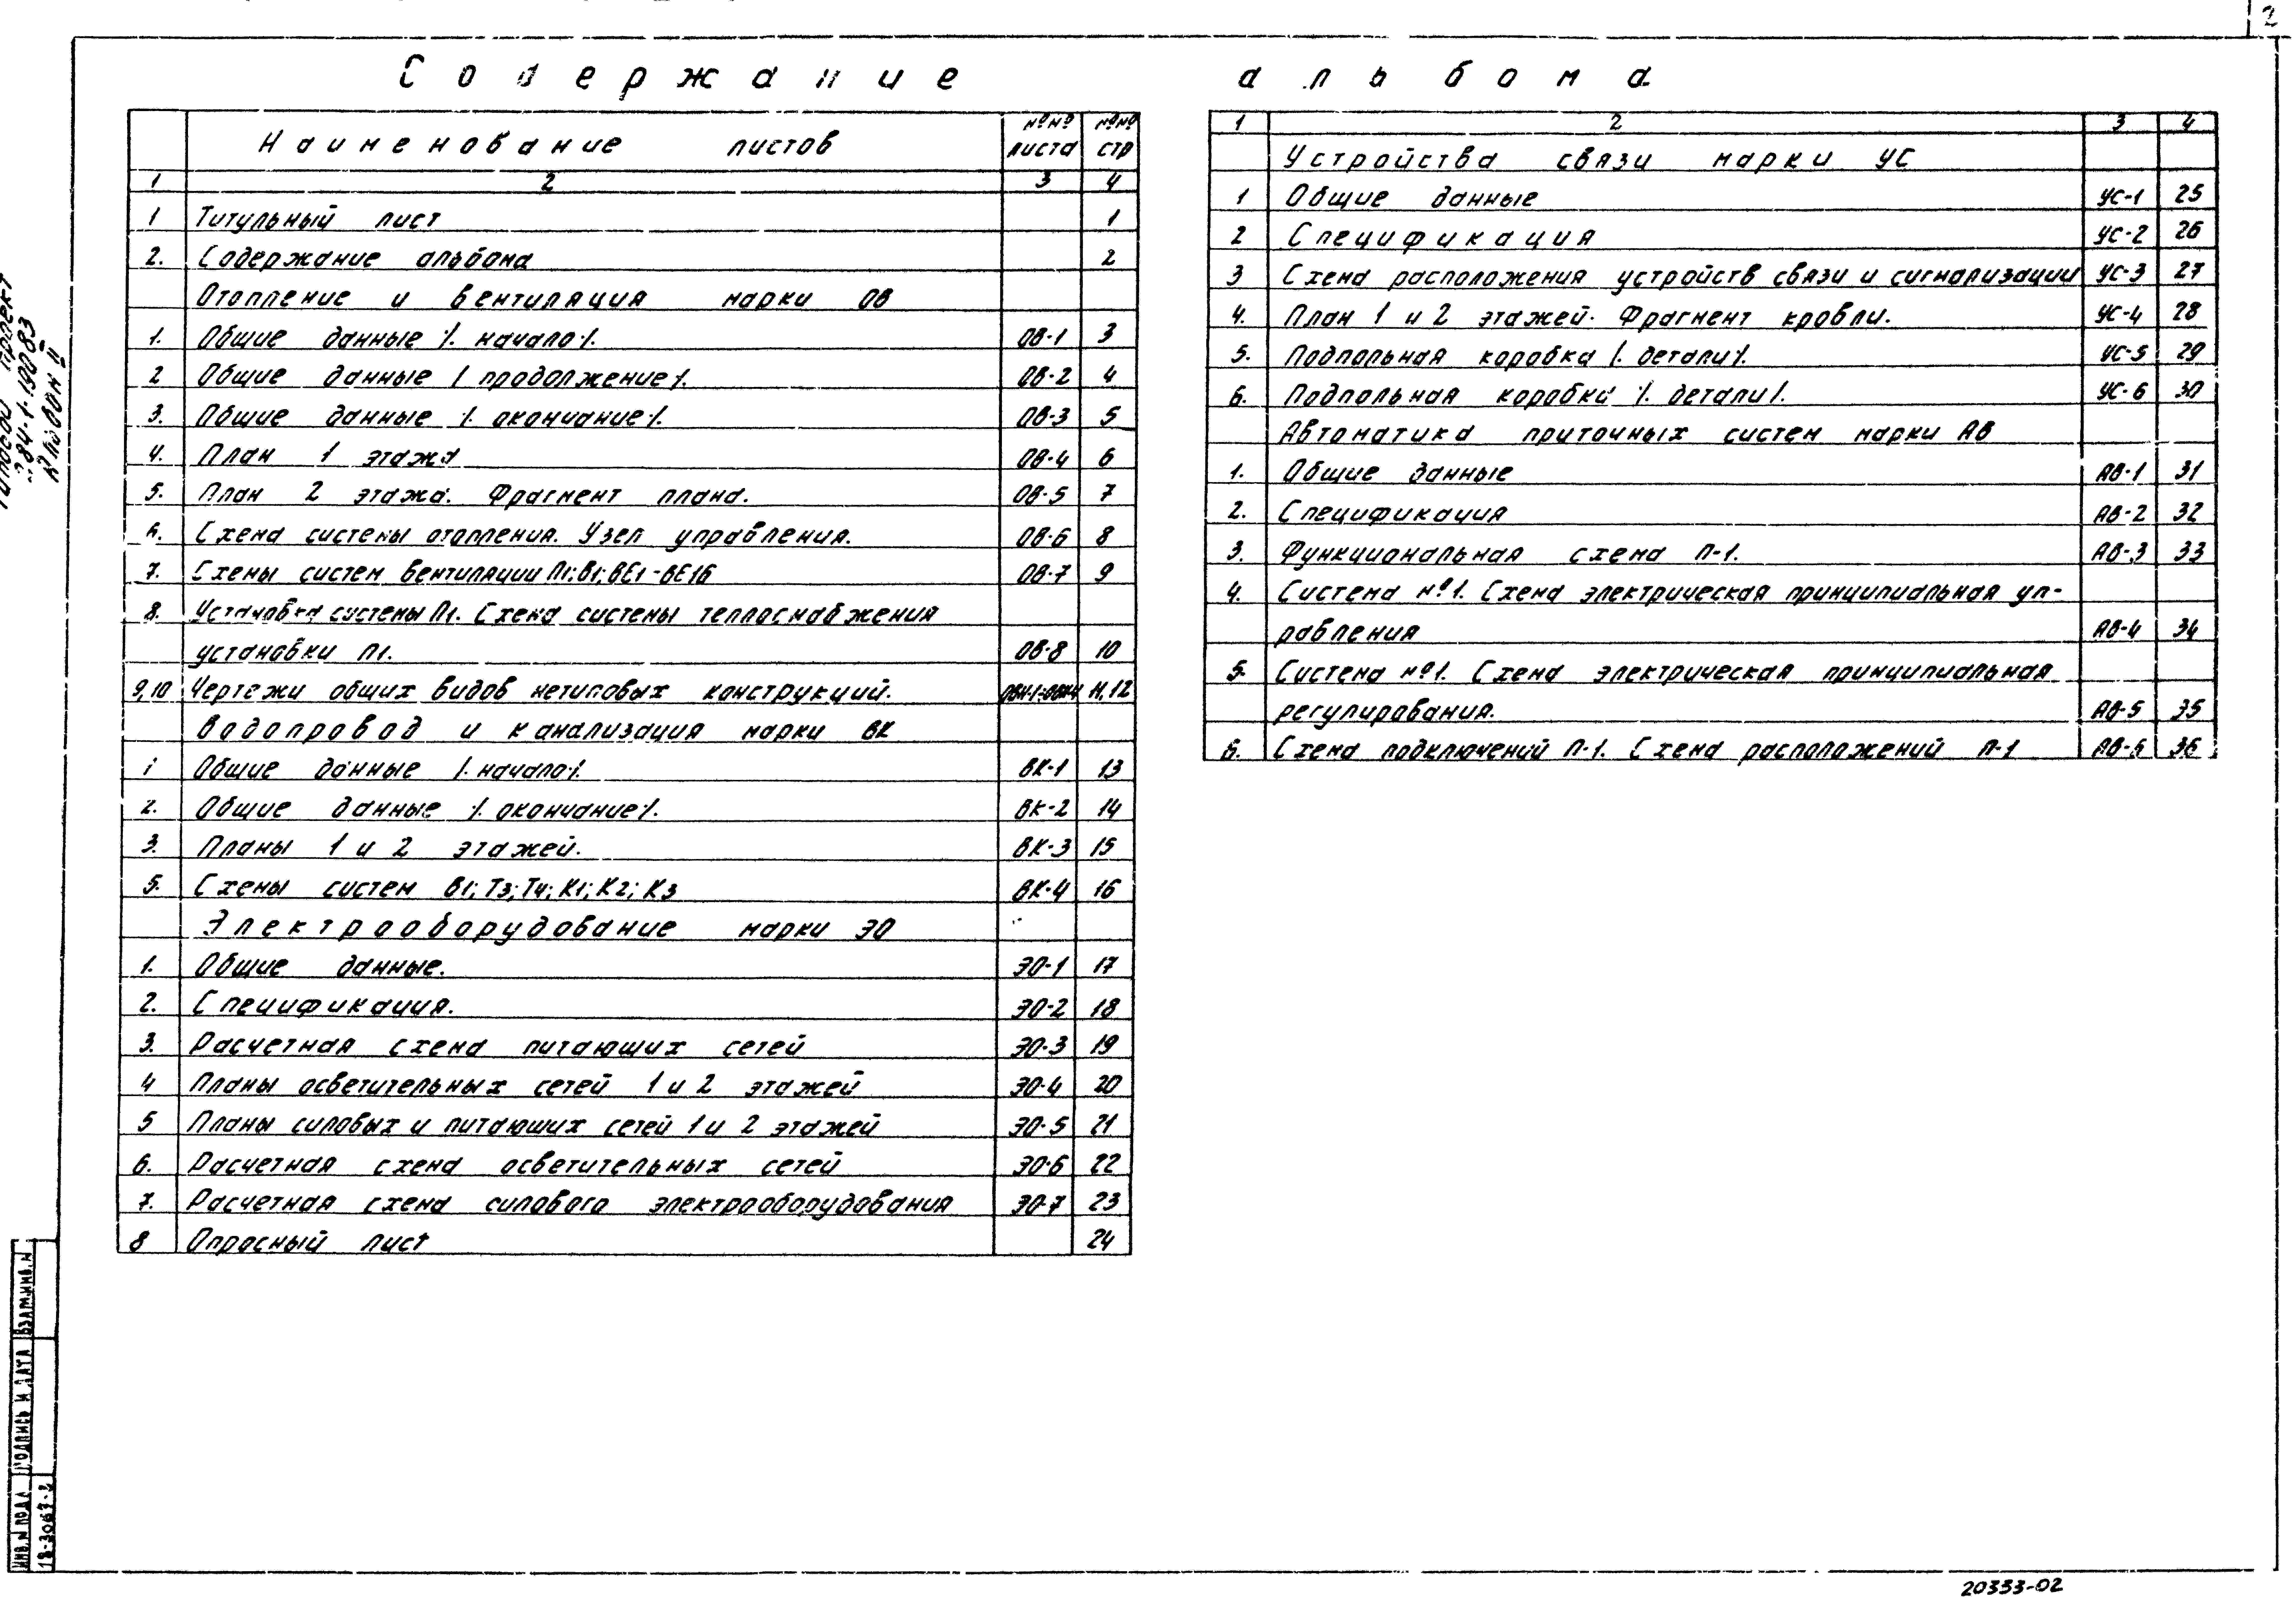 2
Содержание альбома
Наименование листов №№ листа №№ стр
1 2 3 4
1 Титульный лист 1
2. Содержание альбома 2
Отопление и вентиляция марки ОВ
1. Общие данные /. начало/. ОВ-1 3
2 Общие данные / продолжение/. ОВ-2 4
3. Общие данные /. окончание/. ОВ-3 5
4. План 1 этажа ОВ-4 6
5. План 2 этажа. Фрагмент плана. ОВ-5 7
6. Схема системы отопления. Узел управления. ОВ-6 8
7. Схемы систем вентиляции П1; В1; ВЕ1-ВЕ16 ОВ-7 9
8. Установка системы П1. Схема системы теплоснабжения
установки П1. ОВ-8 10
9,10 Чертежи общих видов нетиповых конструкций. 11,12
Водопровод и канализация марки ВК
1 Общие данные /. начало/. ВК-1 13
2. Общие данные /. окончание/. ВК-2 14
3. Планы 1 и 2 этажей. ВК-3 15
5. Схемы систем В1; Т3; Т4; К1; К2; К3 ВК-4 16
Электрооборудование марки ЭО
1. Общие данные. ЭО-1 17
2. Спецификация. ЭО-2 18
3. Расчетная схема питающих сетей ЭО-3 19
4 Планы осветительных сетей 1 и 2 этажей ЭО-4 20
5 Планы силовых и питающих сетей 1 и 2 этажей ЭО-5 21
6. Расчетная схема осветительных сетей ЭО-6 22
7. Расчетная схема силового электрооборудования ЭО-7 23
8 Опросный лист 24
1 2 3 4
Устройства связи марки УС
1 Общие данные УС-1 25
2 Спецификация УС-2 26
3 Схема расположения устройств связи и сигнализации УС-3 27
4. План 1 и 2 этажей. Фрагмент кровли. УС-4 28
5. Подпольная коробка /. детали/. УС-5 29
6. Подпольная коробка /. детали/. УС-6 30
Автоматика приточных систем марки АВ
1. Общие данные АВ-1 31
2. Спецификация АВ-2 32
3. Функциональная схема П-1. АВ-3 33
4. Система №1. Схема электрическая принципиальная уп-
равления АВ-4 34
5. Система №1. Схема электрическая принципиальная
регулирования. АВ-5 35
6. Схема подключений П-1. Схема расположений П-1 АВ-6 36
проект
284-1-190.83
Альбом II
ИНВ.N ПОДЛ ПОДПИСЬ И ДАТА ВЗАМ.ИНВ.N
18-3067-2
20353-02